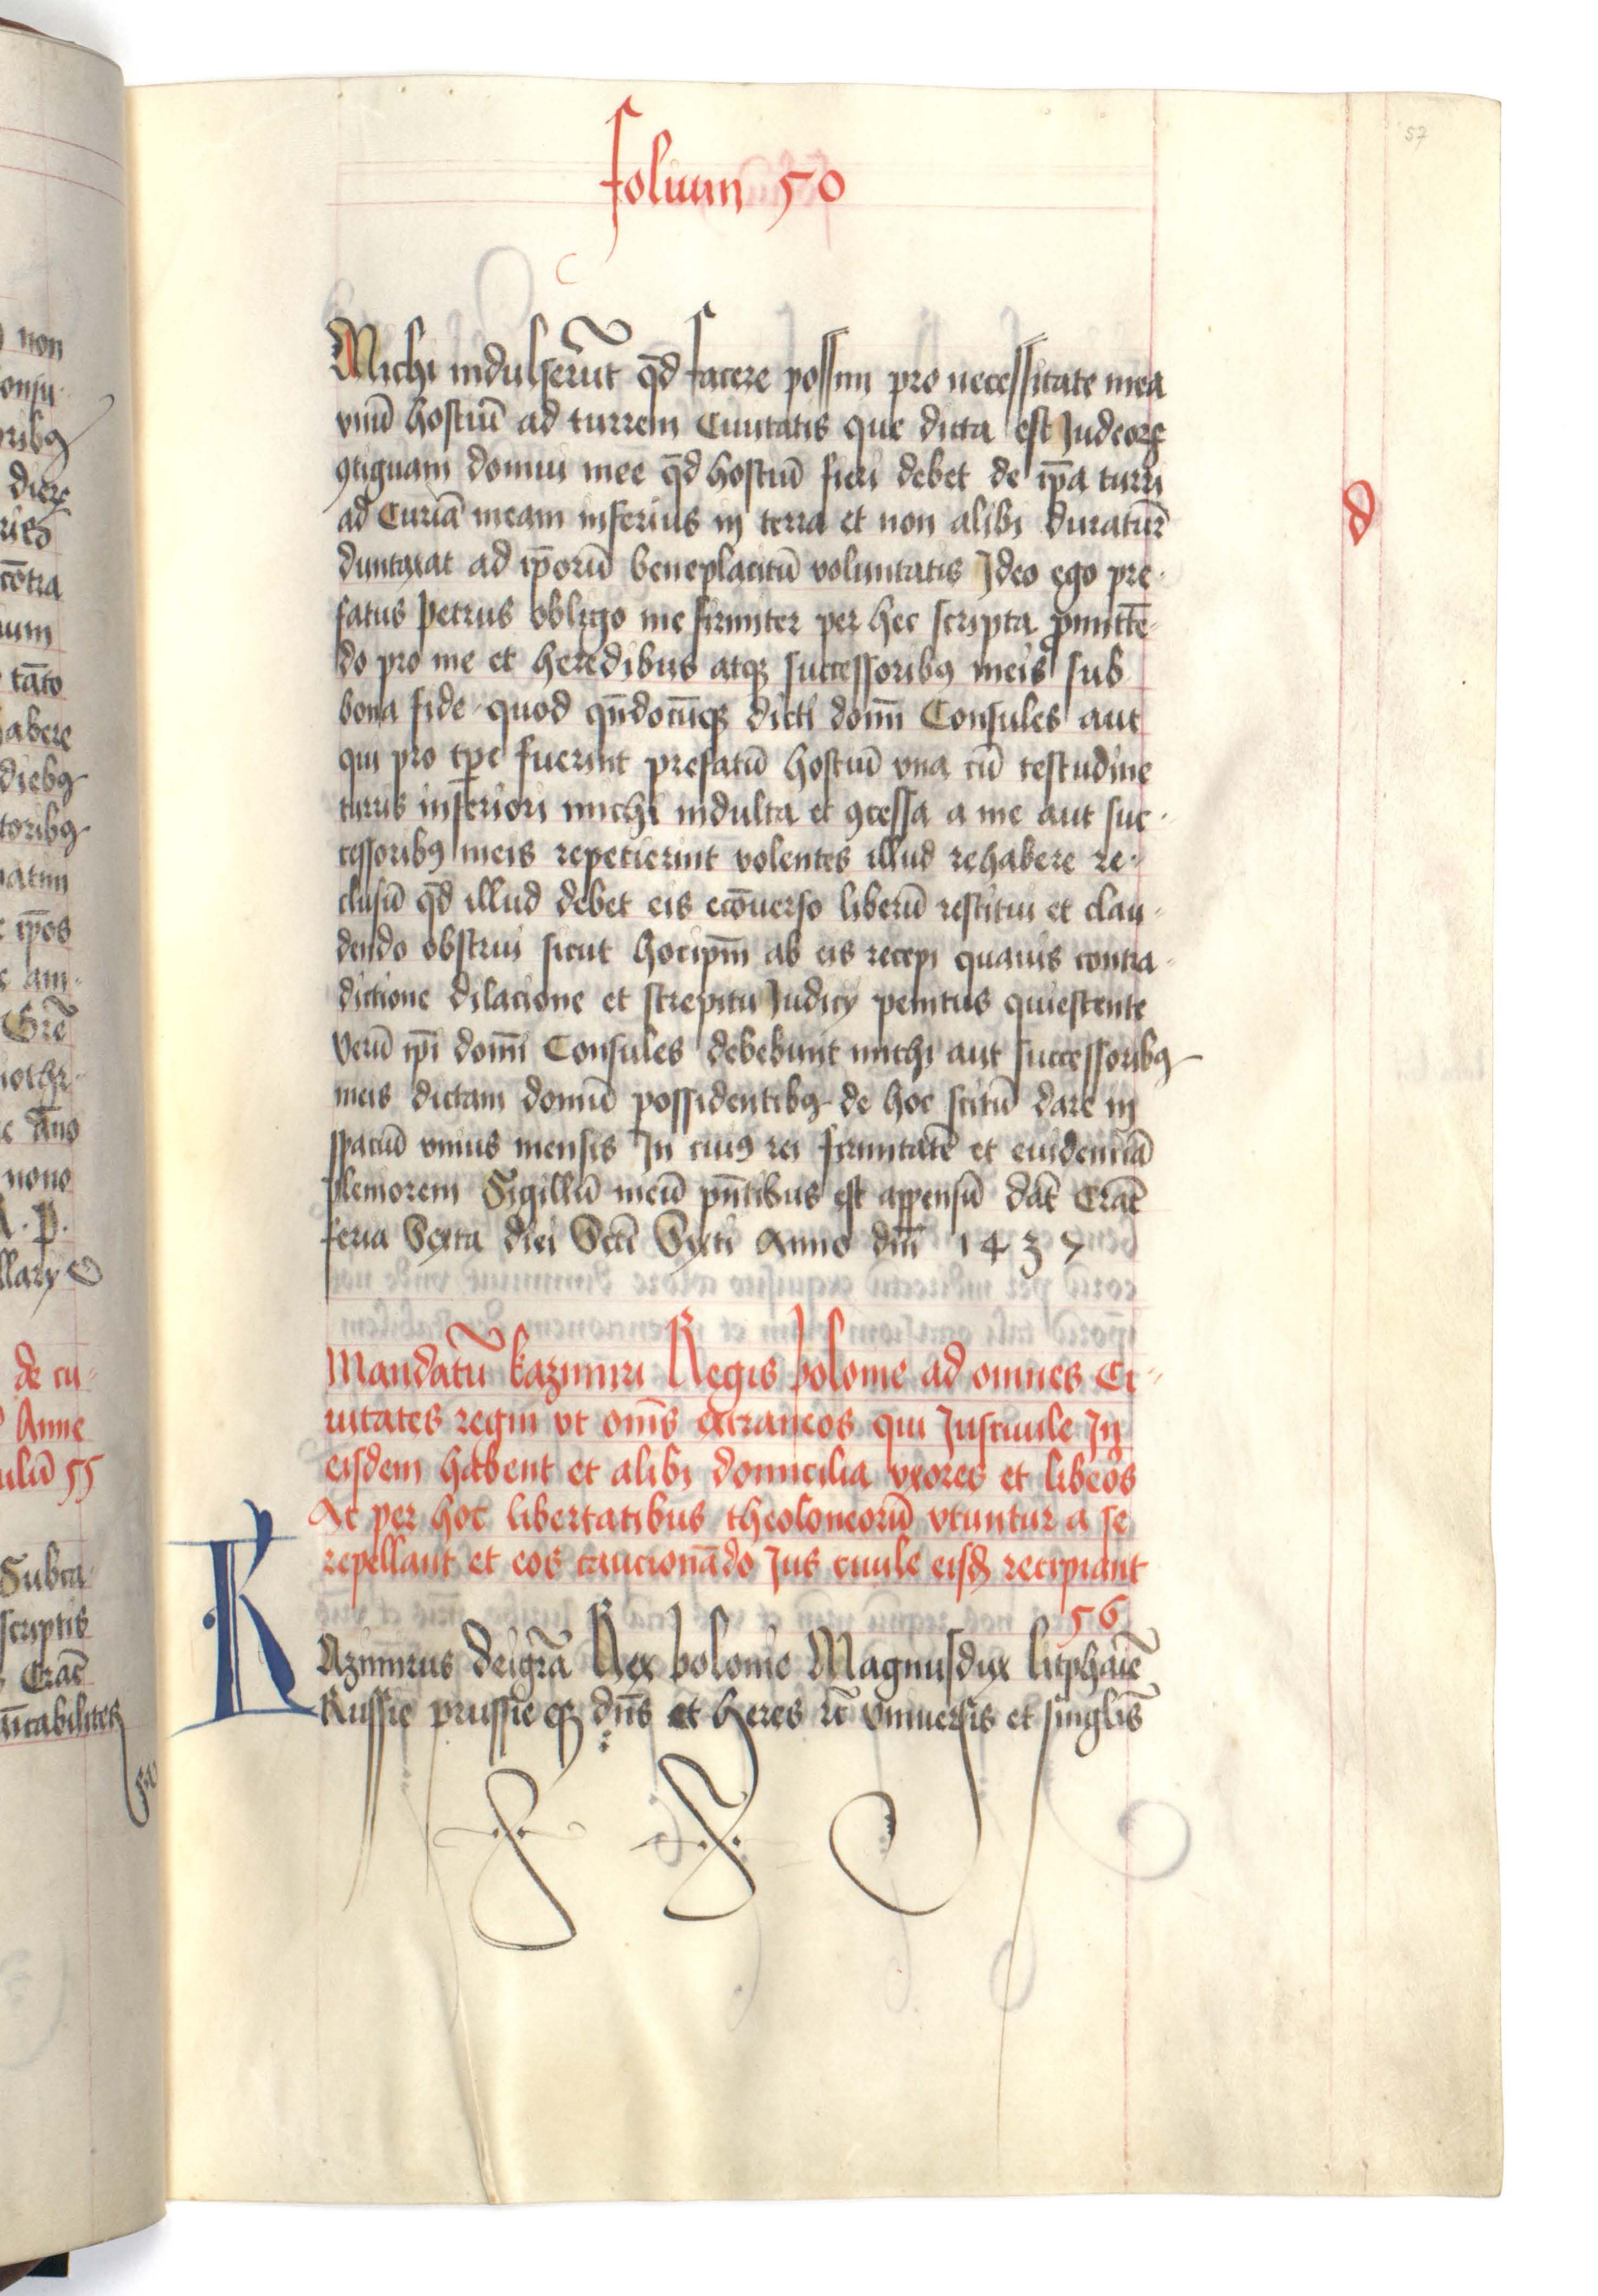 57
folium 50
Michi indulserūt qd̄ facere possim pro necessitate mea
vnū hostiū ad turrem Ciuitatis que dicta est Judeorꝝ
ꝯtiguam domui mee qd̄ hostiū fieri debet de ip̄a turri
ad Curiā meam inferius in terra et non alibi duratur̄
duntaxat ad ip̄orū beneplacitū voluntatis Ideo ego pre-
fatus Petrus obligo me firmiter per hec scripta ꝓmittē-
do pro me et heredibus atqꝫ successoribꝯ meis sub
bona fide quod qn̄docūqꝫ dicti domī Consules aut
qui pro tp̄e fuerint prefatū hostiū vna cū testudine
turris inferiori michi indulta et ꝯcessa a me aut suc-
cessoribꝯ meis repetierint volentes illud rehabere re-
clusū qd̄ illud debet eis ecōuerso liberū restitui et clau-
dendo obstrui sicut hocipm̄ ab eis recepi quauis contra-
dictione dilacione et strepitu Judicÿ penitus quiescente
Verū ip̄i domī Consules debebunt michi aut successoribꝯ
meis dictam domū possidentibꝯ de hoc scitū dare in
spaciū vnius mensis In cuiꝯ rei firmitatē et euidenciā
pleniorem Sigillū meū pn̄tibus est appensū dat̄ Crac̄
feria Sexta diei Scti Sixti Anno dm̄ 1437
Mandatū kazimiri Regis polonie ad omnes Ci-
uitates regni vt om̄s extraneos qui Jusciuile In
eisdem habent et alibi domicilia vxores et libeos
Ac per hoc libertatibus theoloneorū vtuntur a se
repellant et eos caucionādo Jus ciuile eisd̄ recipiant
56
KAzimirus deigrā Rex polonie Magnusdux litphanie
Russie prussie qꝫ dn̄s et heres rc̄ Vniuersis et singlis̄
d